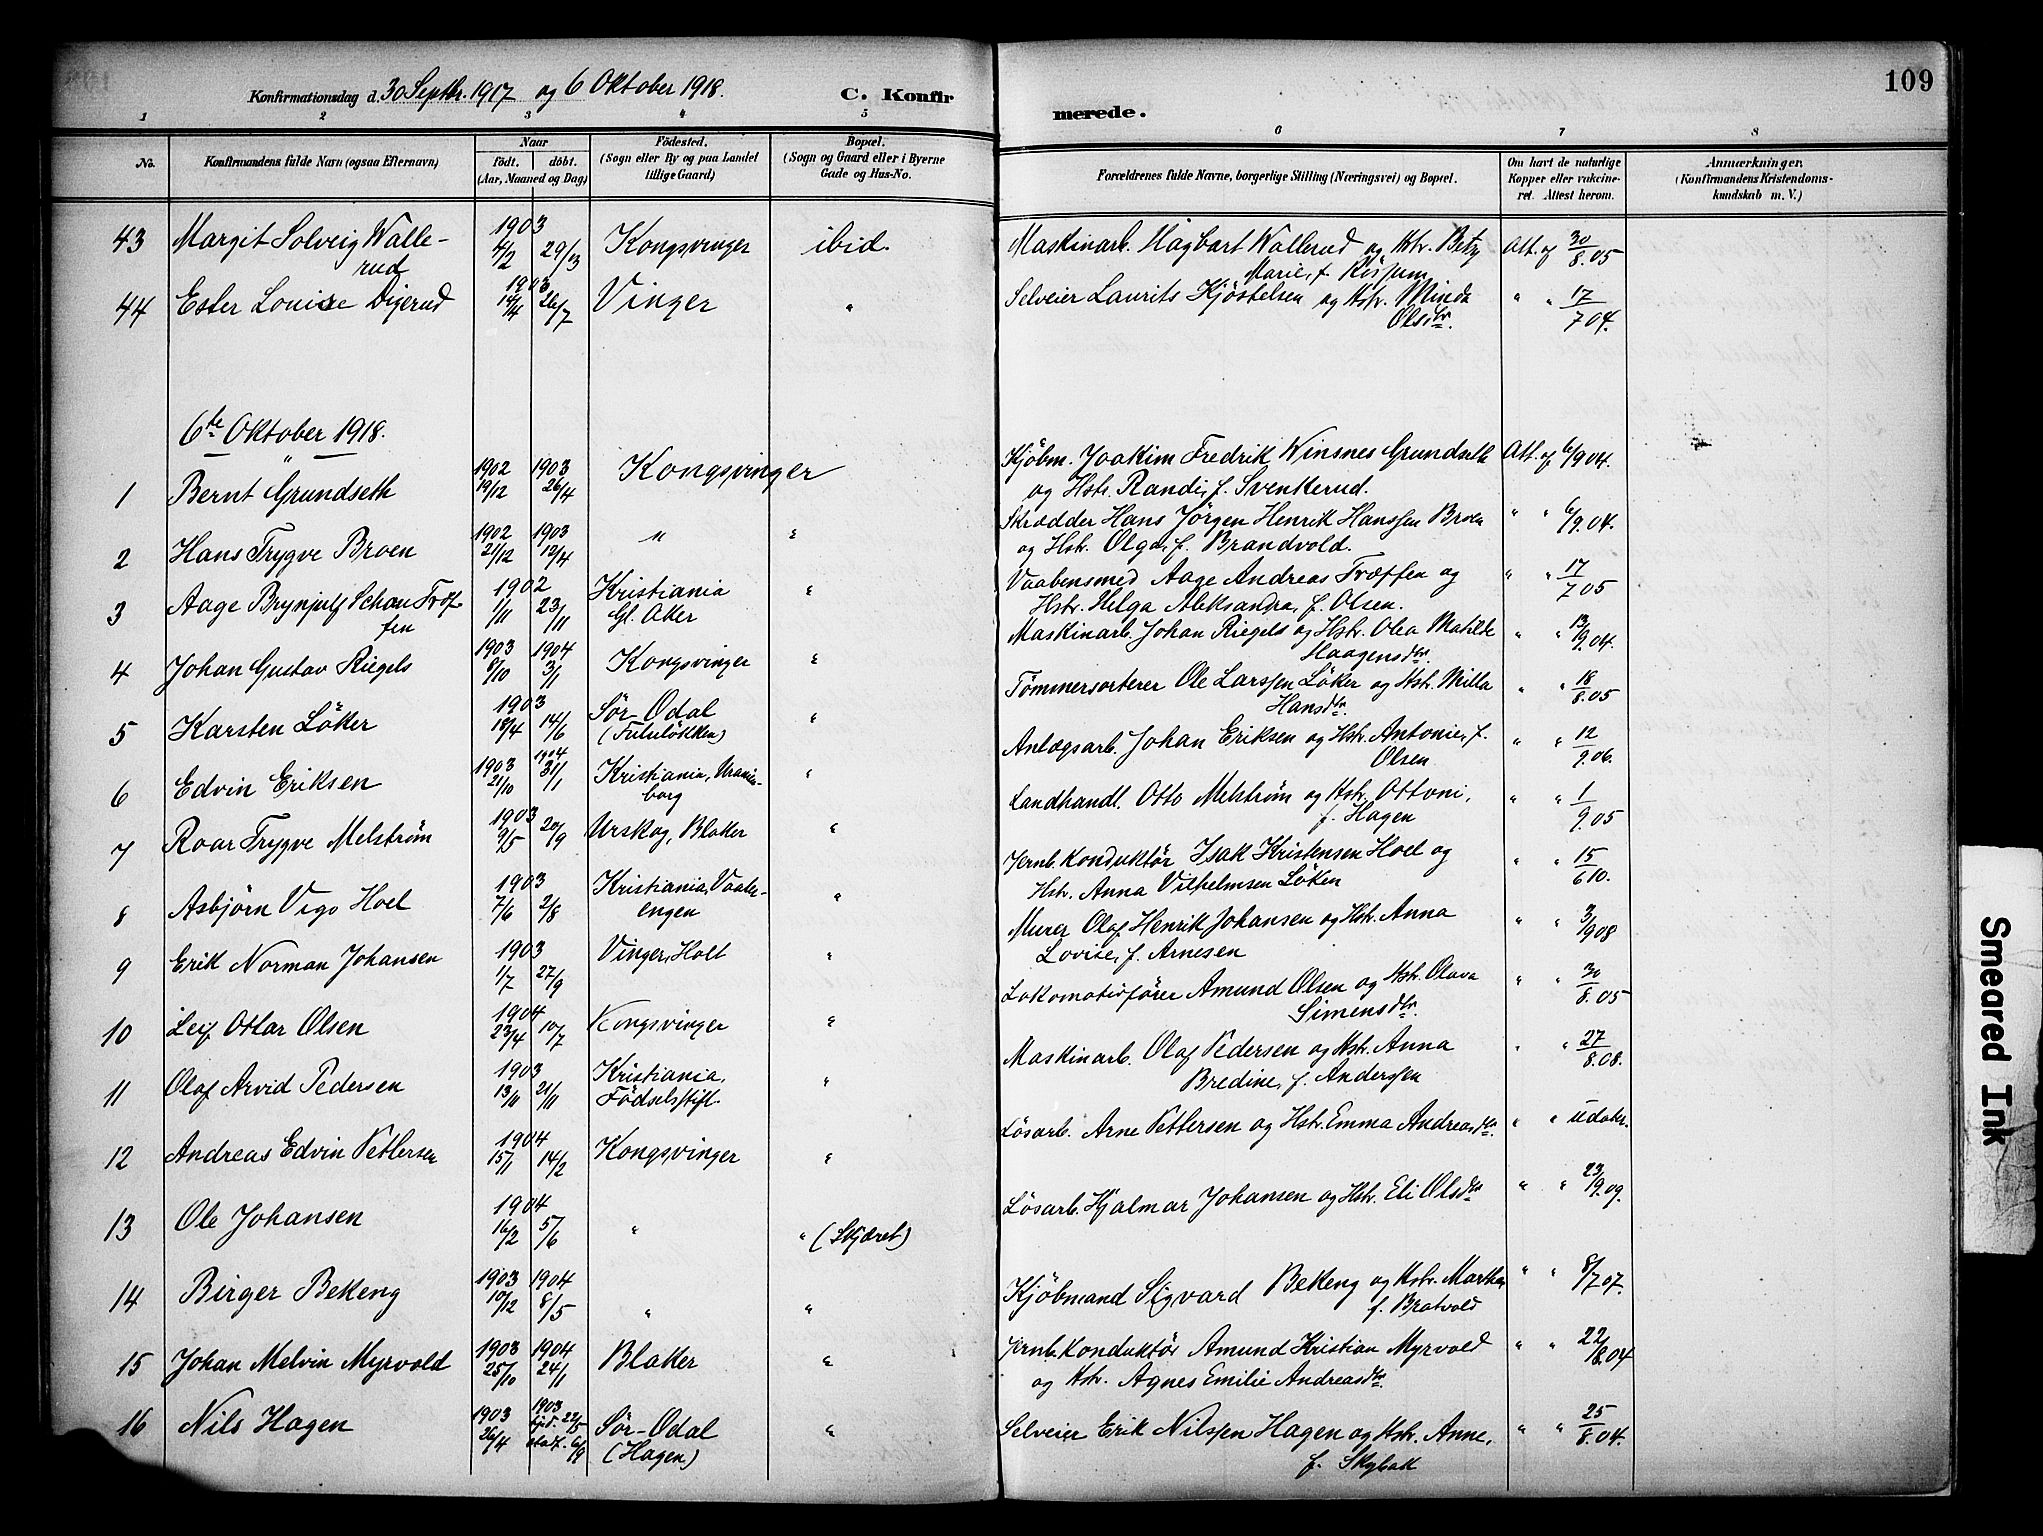 109
Konfirmationsdag d. 30 Septbr. 1917 og 6 Oktober 1918. C. Konfirmerede.
1 2 3 4 5 6 7 8
No. Konfirmandens fulde Navn (ogsaa Efternavn) Naar født. døbt. (Aar, Maaned og Dag) Fødested. (Sogn eller By og paa Landet tillige Gaard) Bopæl. (Sogn og Gaard eller i Byerne Gade og Hus-No. Forældrenes fulde Navne, borgerlige Stilling (Næringsvei) og Bopæl. Om havt de naturlige Kopper eller vakcineret. Attest herom. Anmærkninger. (Konfirmandens Kristendomskundskab m. V.)
43 Margit Solveig Wallerud 1903 4/2 29/03 Kongsvinger ibid. Maskinarb. Hagbart Wallerud og Hstr. Betzy Marie, f. Rösjum Att. af 30/8.05
44 Ester Louise Digerud 1903 19/4 26/7 Vinger " Selveier Laurits Kjöstelsen og Hstr. Minda Olsdtr. " " 17/7 04.
6te Oktober 1918.
1 Bernt Grundseth 1902 19/12 1903 26/4 Kongsvinger Kjöbm. Joakim Fredrik Winsnes Grundseth og Hstr. Randi, f. Svenkerud. Att. af 6/9 04.
2 Hans Trygve Broen 1902 21/12 1903 12/4 " " Skrædder Hans Jörgen Henrik Hanssen Broen og Hstr. Olga, f. Brandvold. " " 6/9.04.
3 Aage Brynjulf Schou Træffen 1902 1/11 23/11 Kristiania Gl. Aker " Vaabensmed Aage Andreas Træffen og Hstr. Helga Aleksandra, f. Olsen. " " 17/7 05
4 Johan Gustav Riegels 1903 8/10 1904 3/1 Kongsvinger " Maskinarb. Johan Riegels og Hstr. Olea Matilde Haagensdtr. " " 13/9.04.
5 Karsten Löker 1903 18/4 14/6 Sör-Odal " Tömmersorterer Ole Larssen Löker og Hstr. Milla Hansdtr. " " 18/8.05
6 Edvin Eriksen 1903 21/10 1904 31/1 Kristiania, Uranienborg " Anlægsarb. Johan Eriksen og Hstr. Antonie, f. Olsen " " 12/9.06.
7 Roar Trygve Melström 1903 9/5 20/9 Urskog, Blaker " Landhandl. Otto Melström og Hstr. Ottoni, f. Hagen " " 1/9.05
8 Asbjörn Vigo Hoel 1903 7/6 2/8 Kristiania, Vaalerengen " Jernb. Konduktör Isak Kristensen Hoel og Hstr. Anna Vilhelmsen Löken " " 15/6 10.
9 Erik Norman Johansen 1903 1/7 27/9 Vinger, Holt " Murer Olaf Henrik Johansen og Hstr. Anna Lovise, f. Arnesen " " 3/9 08
10 Leif Ottar Olsen 1904 23/4 10/7 Kongsvinger " Lokomotivförer Amund Olsen og Hstr. Olava Simensdtr. " " 30/8.05
11 Olaf Arvid Pedersen 1903 13/11 21/11 Kristiania, Födselsstift. " Maskinarb. Olaf Pedersen og Hstr. Anna Bredine, f. Anderssen " " 27/8.08.
12 Andreas Edvin Pettersen 1904 15/1 14/2 Kongsvinger " Lösarb. Arne Pettersen og Hstr. Emma Andreasdtr. " " udater.
13 Ole Johansen 1904 16/2 5/6 " " (Skjæret) Lösarb. Hjalmar Johansen og Hstr. Eli Olsdtr " " 23/9.09.
14 Birger Bekeng 1903 10/12 1904 8/5 " " Kjöbmand Sigvard Bekeng og Hstr. Martha, f. Bratvold " " 8/7 07.
15 Johan Melvin Myrvold 1903 25/10 1904 24/1 Blaker " Jernb. Konduktör Amund Kristian Myrvold og Hstr. Agnes Emilie Andreasdtr. " " 22/8.04
16 Nils Hagen 1903 26/4 1903 hjd. 22/5 stadf. 6/9 Sör-Odal (Hagen) " Selveier Erik Nilssen Hagen og Hstr. Anne, f. Skybak " " 25/8.04.
Smeared Ink